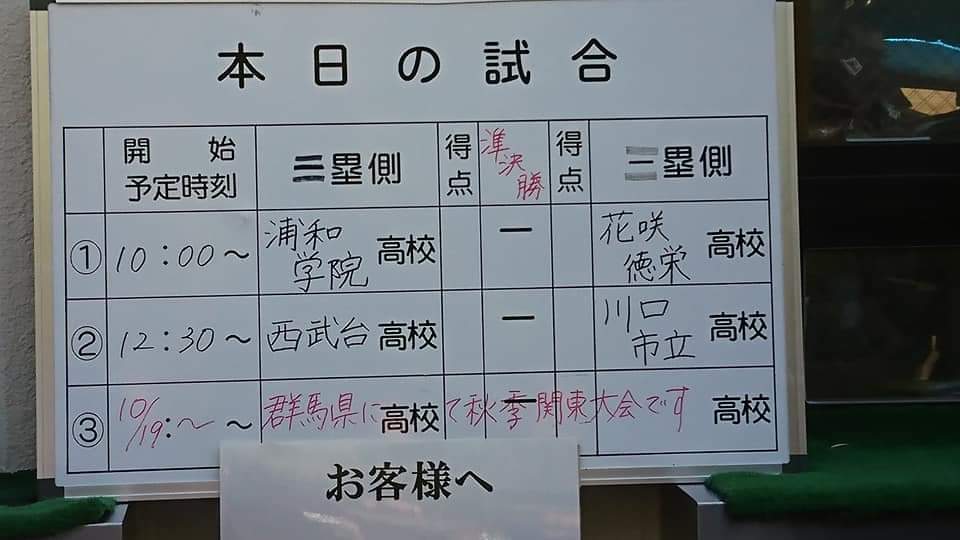 本日の試合
開始
予定時刻
三塁側
得点
準決勝
得点
一塁側
① 10:00～ 浦和学院 高校 ー 花咲徳栄 高校
② 12:30～ 西武台 高校 ー 川口市立 高校
③ 10/19:～ ～ 群馬県にて秋季関東大会です 高校 ー 高校
お客様へ